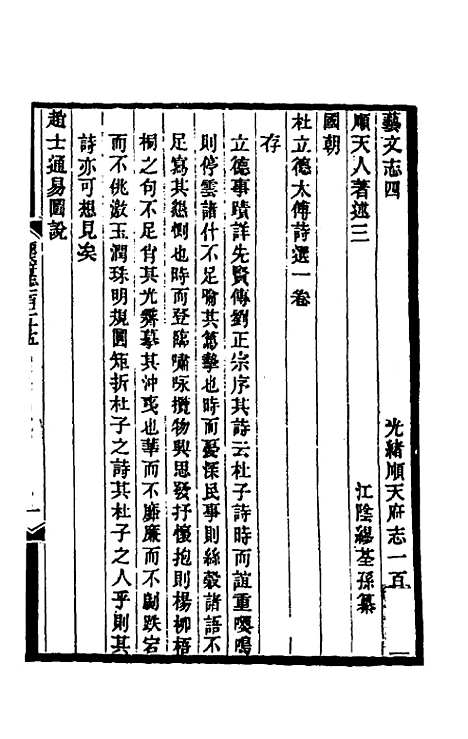 藝文志四　光緒順天府志一百
順天人著述三　江陰繆荃孫纂
國朝
杜立德太傅詩選一卷
存
立德事蹟詳先賢傳劉正宗序其詩云杜子詩時而誼重嚶鳴
則停雲諸什不足喻其篤摯也時而憂深民事則絲穀諸語不
足寫其懇惻也時而登臨嘯咏攬物興思發抒懷抱則楊柳梧
桐之句不足肖其光霽摹其沖夷也華而不靡廉而不劌跌宕
而不佻澂玉潤珠明規圓矩折杜子之詩其杜子之人乎則其
詩亦可想見矣
趙士通易圖說